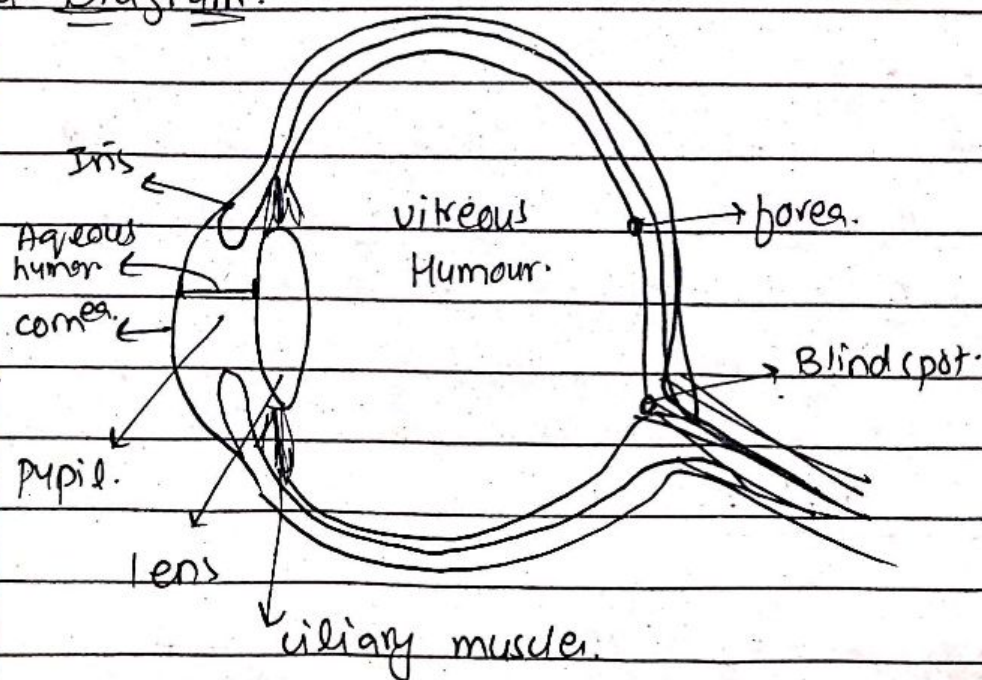 Diagram.
Iris
Aqeous
humor
cornea.
pupil.
lens
ciliary muscles.
vitreous
Humour.
fovea.
Blind spot.